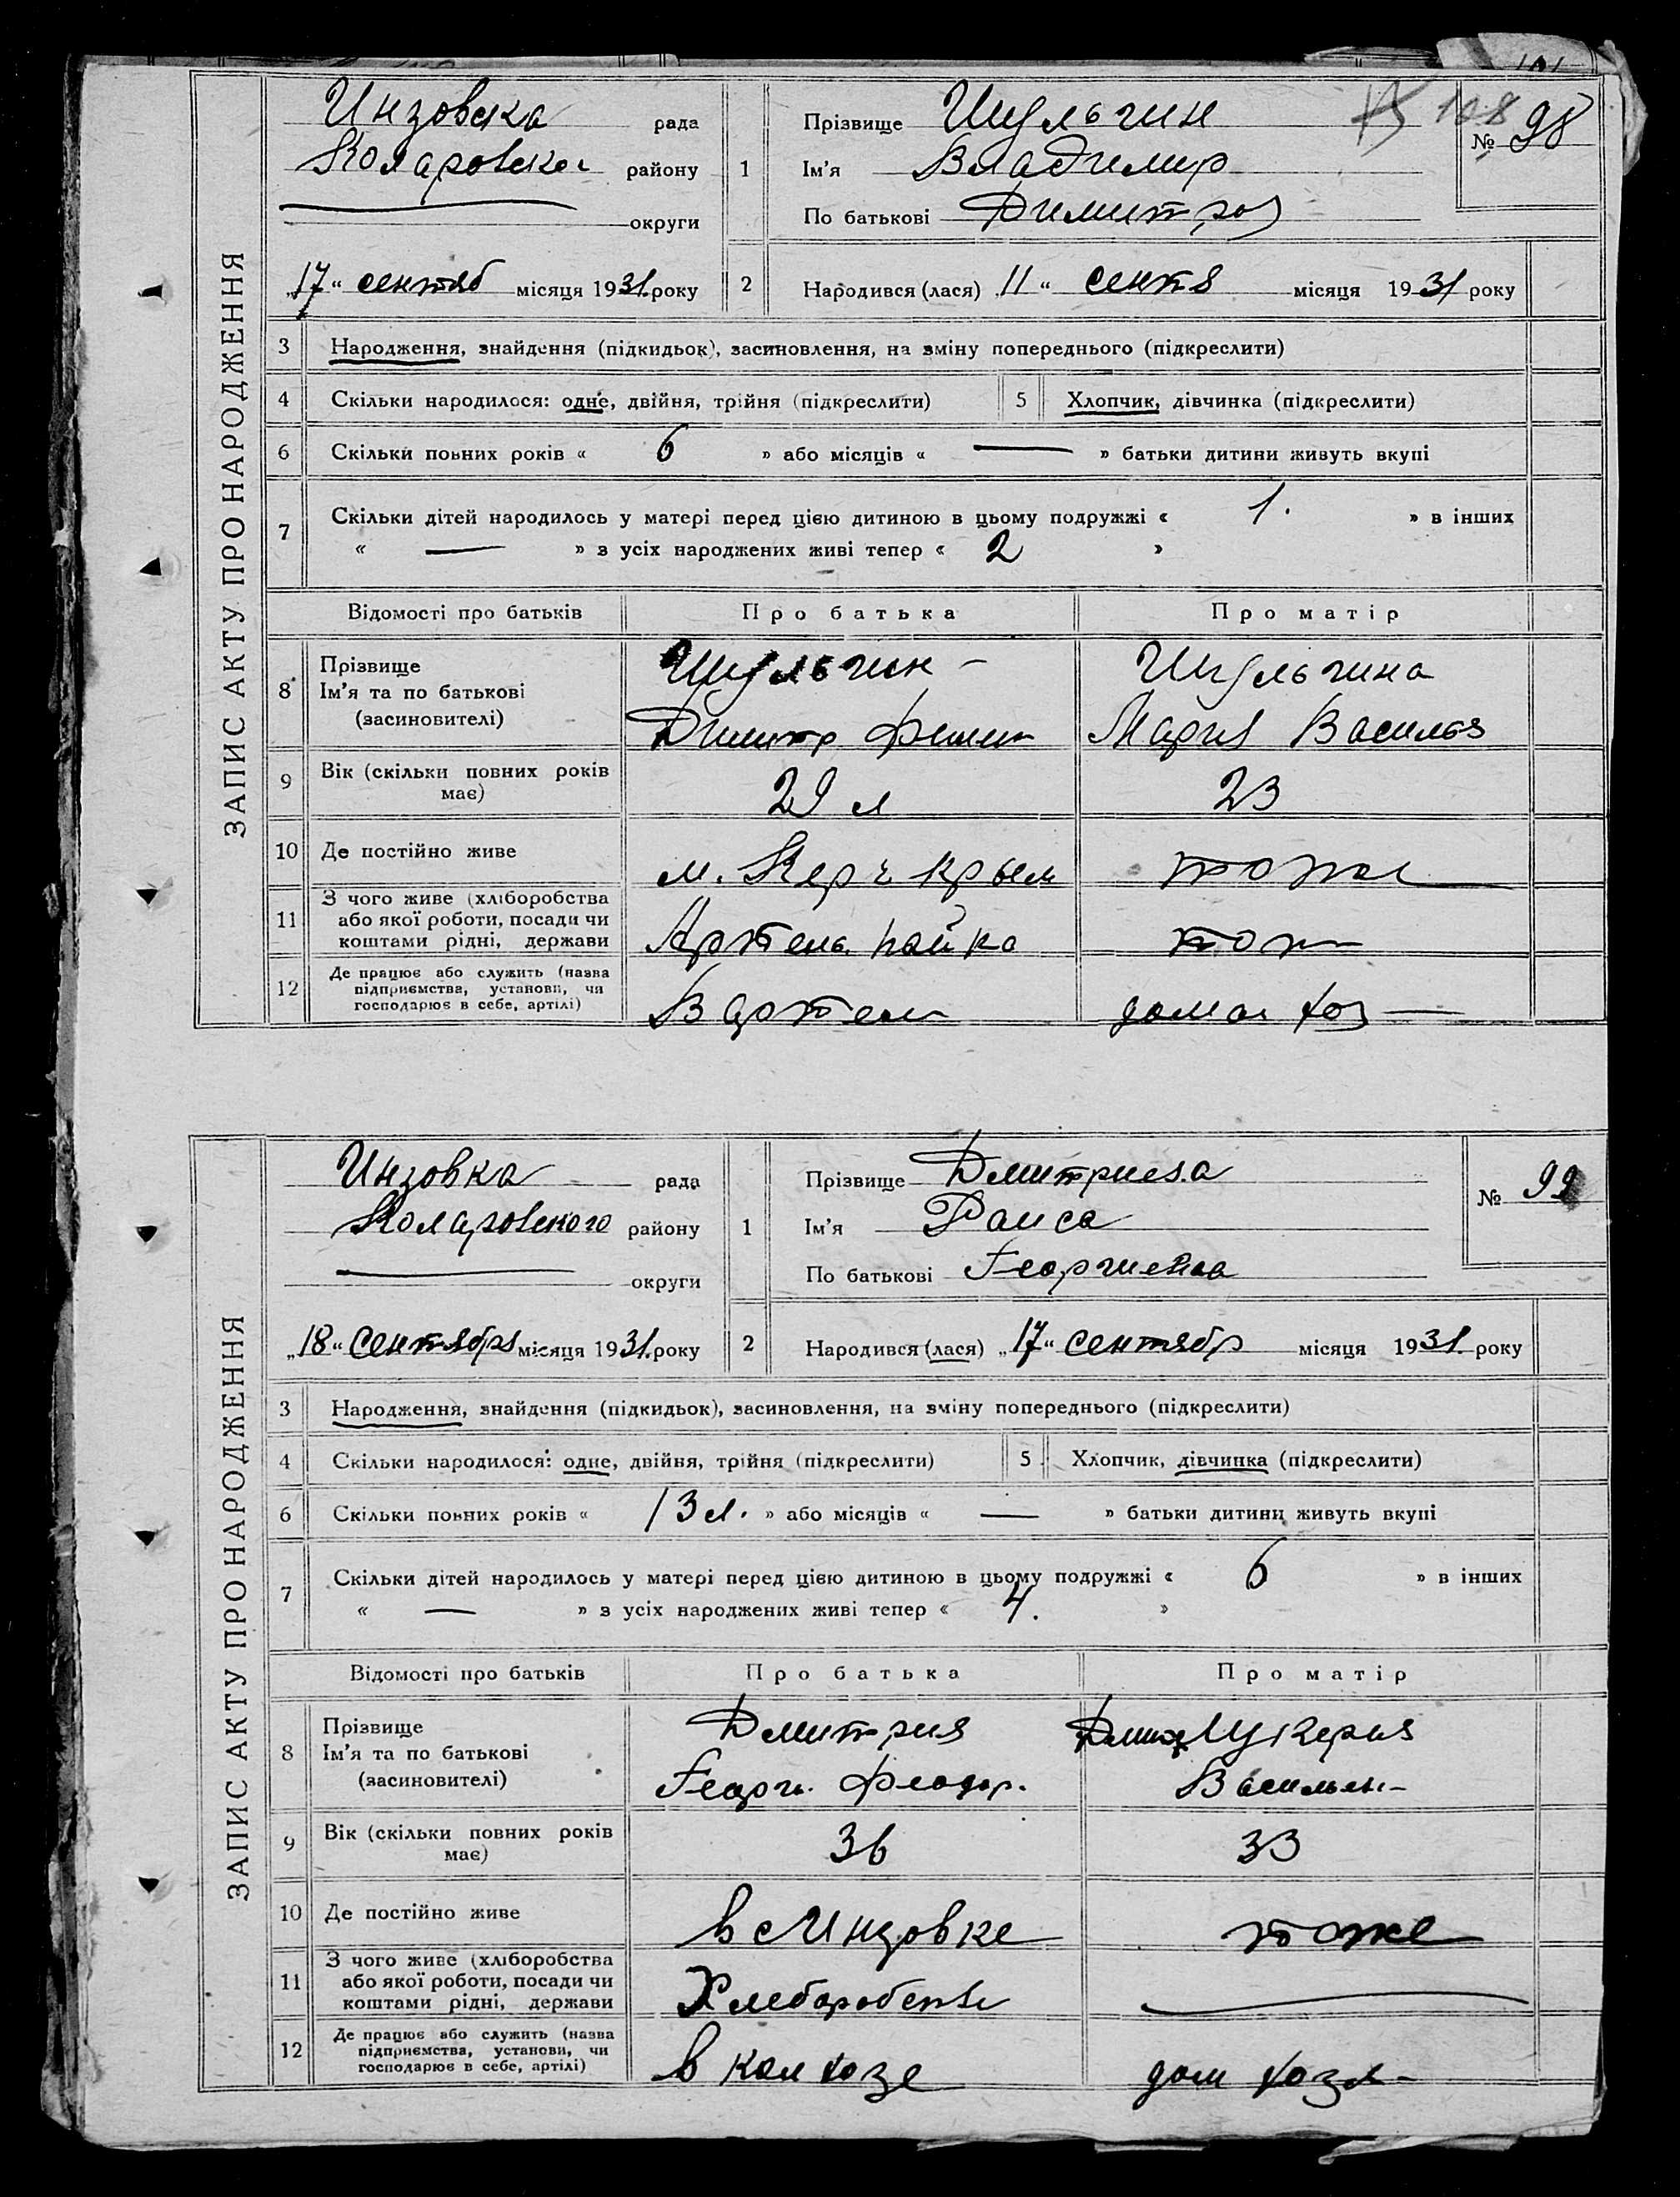 ЗАПИС АКТУ ПРО НАРОДЖЕННЯ
Инзовска рада
Коларовска району
округи
„17“ сентяб місяця 1931 року
108
№ 98
1 Прізвище Шульгин
Ім'я Владимир
По батькові Димитров
2 Народився (лася) „11“ сентя місяця 1931 року
3 Народження, знайдення (підкидьок), засиновлення, на зміну попереднього (підкреслити)
4 Скільки народилося: одне, двійня, трійня (підкреслити) 5 Хлопчик, дівчинка (підкреслити)
6 Скільки повних років « 6 » або місяців « — » батьки дитини живуть вкупі
7 Скільки дітей народилось у матері перед цією дитиною в цьому подружжі « 1. » в інших
« — » з усіх народжених живі тепер « 2 »
Відомості про батьків Про батька Про матір
8 Прізвище
Ім'я та по батькові
(засиновителі)
Шульгин
Димитр
Шульгина
Мария Василев
9 Вік (скільки повних років має) 29 л 23
10 Де постійно живе м. Керч Крым тоже
11 З чого живе (хліборобства
або якої роботи, посади чи
коштами рідні, держави
Артель
12 Де працює або служить (назва
підприємства, установи, чи
господарює в себе, артілі)
В артели дома хоз
ЗАПИС АКТУ ПРО НАРОДЖЕННЯ
Инзовка рада
Коларовского району
округи
„18“ сентября місяця 1931 року
№ 99
1 Прізвище Дмитриева
Ім'я Раиса
По батькові Георгиевна
2 Народився (лася) „17“ сентябр місяця 1931 року
3 Народження, знайдення (підкидьок), засиновлення, на зміну попереднього (підкреслити)
4 Скільки народилося: одне, двійня, трійня (підкреслити) 5 Хлопчик, дівчинка (підкреслити)
6 Скільки повних років « 13 л. » або місяців « — » батьки дитини живуть вкупі
7 Скільки дітей народилось у матері перед цією дитиною в цьому подружжі « 6 » в інших
« — » з усіх народжених живі тепер « 4. »
Відомості про батьків Про батька Про матір
8 Прізвище
Ім'я та по батькові
(засиновителі)
Дмитрив
Георги. Феодор.
Дмитр
Васильев
9 Вік (скільки повних років має) 36 33
10 Де постійно живе в с Инзовке тоже
11 З чого живе (хліборобства
або якої роботи, посади чи
коштами рідні, держави
Хлеборобств
12 Де працює або служить (назва
підприємства, установи, чи
господарює в себе, артілі)
в колхозе дом хозя